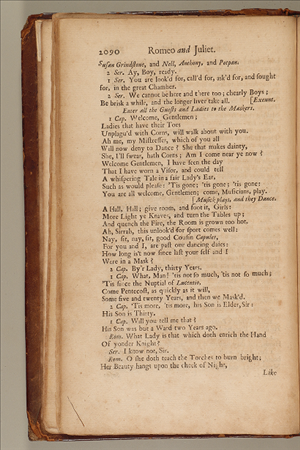 2090 Romeo and Juliet.
Susan Grindstone, and Nell, Anthony, and Potpan.
2 Ser. Ay, Boy, ready.
1 Ser. You are look'd for, call'd for, ask'd for, and sought
for, in the great Chamber.
2 Ser. We cannot be here and there too; chearly Boys;
Be brisk a while, and the longer liver take all. [Exeunt.
Enter all the Guests and Ladies to the Maskers.
1 Cap. Welcome, Gentlemen;
Ladies that have their Toes
Unplagu'd with Corns, will walk about with you.
Ah me, my Mistresses, which of you all
Will now deny to Dance? She that makes dainty,
She, I'll swear, hath Corns; Am I come near ye now?
Welcome Gentlemen, I have seen the day
That I have worn a Visor, and could tell
A whispering Tale in a fair Lady's Ear,
Such as would please: 'Tis gone; 'tis gone; 'tis gone:
You are all welcome, Gentlemen; come, Musicians, play.
[Musick plays, and they Dance.
A Hall, Hall; give room, and foot it, Girls:
More Light ye Knaves, and turn the Tables up;
And quench the Fire, the Room is grown too hot.
Ah, Sirrah, this unlook'd for sport comes well:
Nay, sit, nay, sit, good Cousin Capulet,
For you and I, are past our dancing daies:
How long is't now since last your self and I
Were in a Mask?
2 Cap. By'r Lady, thirty Years.
1 Cap. What, Man! 'tis not so much, 'tis not so much;
'Tis since the Nuptial of Lucentio,
Come Pentecost, as quickly as it will,
Some five and twenty Years, and then we Mask'd.
2 Cap. 'Tis more, 'tis more, his Son is Elder, Sir:
His Son is Thirty.
1 Cap. Will you tell me that?
His Son was but a Ward two Years ago.
Rom. What Lady is that which doth enrich the Hand
Of yonder Knight?
Ser. I know not, Sir.
Rom. O she doth teach the Torches to burn bright;
Her Beauty hangs upon the cheek of Night,
Like